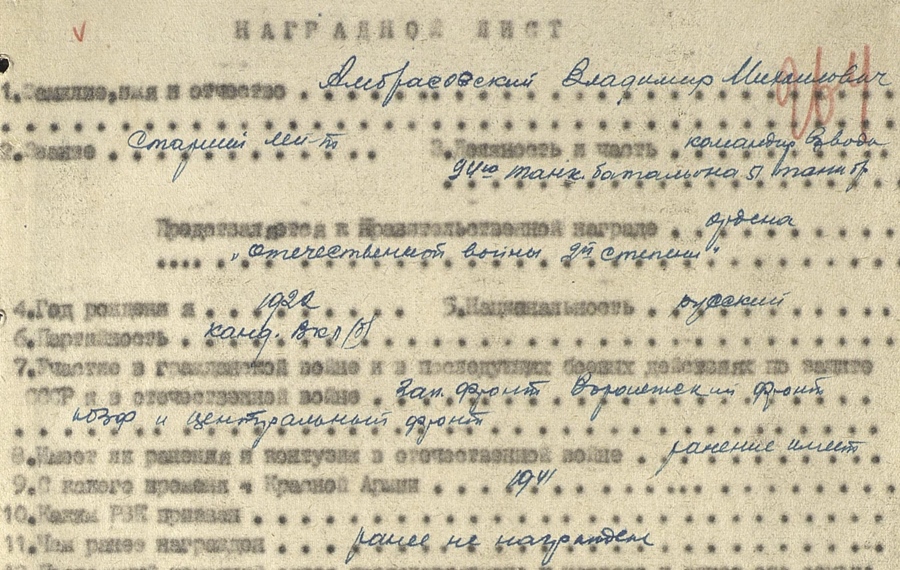 НАГРАДНОЙ ЛИСТ
264
1. Фамилия, имя и отчество Амбрасовский Владимир Михайлович
2. Звание Старший лей-т 3. Должность и часть командир взвода
танк. батальона 51 танк бр
Представляется к Правительственной награде ордена
"Отечественной войны 2й степени"
4. Год рождения 1922 5. Национальность русский
6. Партийность канд. ВКП(б)
7. Участие в гражданской войне и в последующих боевых действиях по защите
СССР и в отечественной войне Зап. фронт Воронежский фронт
ЮЗФ и центральный фронт
8. Имеет ли ранения и контузии в отечественной войне ранение имеет
9. С какого времени в Красной Армии 1941
10. Каким РВК призван
11. Чем ранее награжден ранее не награжден